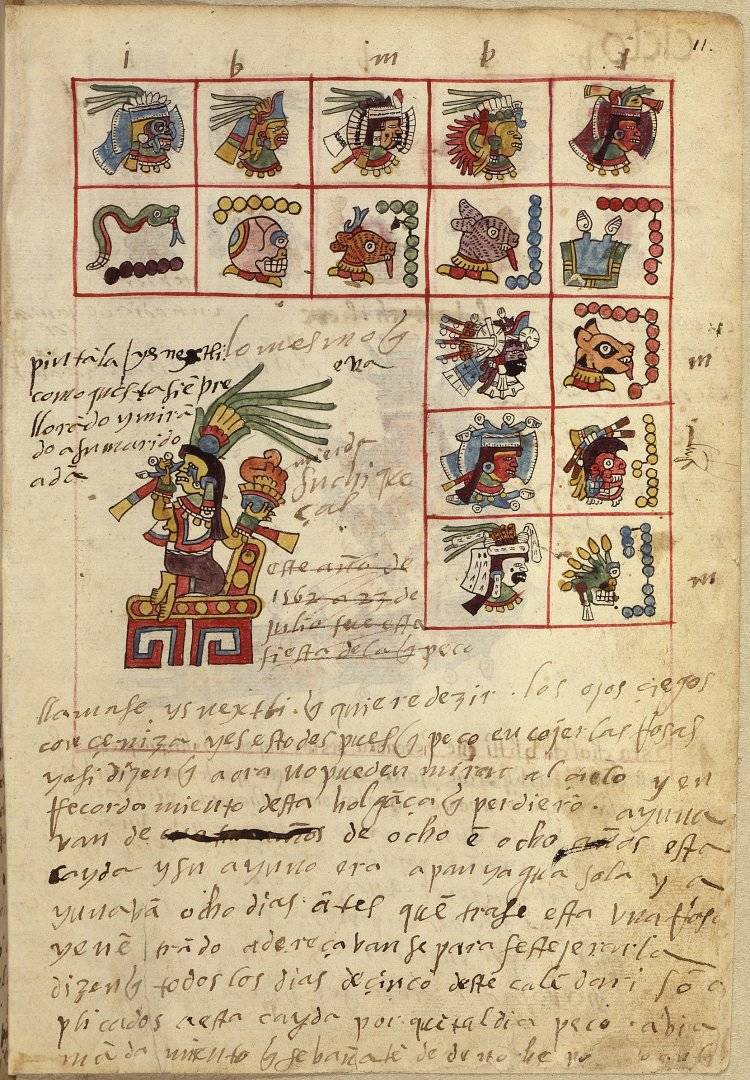 11.
i b m b i
m
m
lo mesmo q̃
eva
pintāla / ysnextli
como questa siēpre
llorādo y mirā
do a su marido
adā
suchique
çal
este año de
1562 a 27 de
julio fue esta
fiesta de la q̃ peco
llamase ysnextli. q̃ quiere dezir. los ojos çiegos
con ceniza yes esto despues q̃ peco en cojer las rrosas
y asi dizen q̃ aora no pueden mirar al çielo y en
rrecorda miento desta holgāça q̃ perdierō. ayuna
van de de ocho ē ocho años esta
cayda y su ayuno era a pan yagua sola y a
yunavā ocho dias. ātes quē trase esta una rrosa
yenē trādo adereçavanse para festejerarla
dizen q̃ todos los dias de çinco deste calēdari sō a
plicados aesta cayda por que ital dia peco. abia
māda miento q̃ se bañasē de